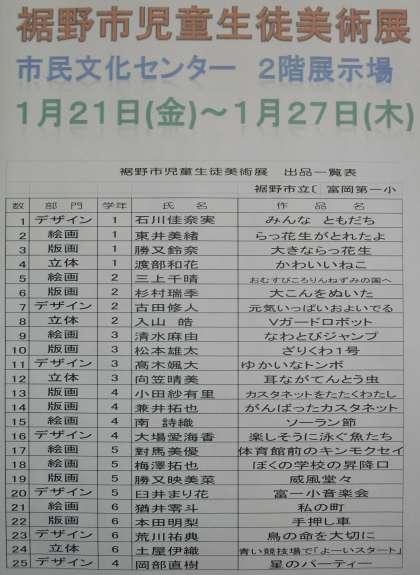 裾野市児童生徒美術展
市民文化センター 2階展示場
1月21日(金)～1月27日(木)
裾野市児童生徒美術展 出品一覧表
裾野市立〔 富岡第一小
数 部門 学年 氏名 作品名
1 デザイン 1 石川佳奈実 みんな ともだち
2 絵画 1 東井美緒 らっ花生がとれたよ
3 版画 1 勝又鈴奈 大きならっ花生
4 立体 1 渡部和花 かわいいねこ
5 絵画 2 三上千晴 おむすびころりんねずみの国へ
6 版画 2 杉村瑞季 大こんをぬいた
7 デザイン 2 古田修人 元気いっぱいおよいでる
8 立体 2 入山 皓 Vガードロボット
9 絵画 3 清水麻由 なわとびジャンプ
10 版画 3 松本雄太 ざりくわ1号
11 デザイン 3 高木颯大 ゆかいなトンボ
12 立体 3 向笠晴美 耳ながてんとう虫
13 版画 4 小田紗有里 カスタネットをたたくわたし
14 版画 4 兼井拓也 がんばったカスタネット
15 絵画 4 南 詩織 ソーラン節
16 デザイン 4 大場愛海香 楽しそうに泳ぐ魚たち
17 絵画 5 對馬美優 体育館前のキンモクセイ
18 絵画 5 梅澤拓也 ぼくの学校の昇降口
19 版画 5 勝又映美菜 威風堂々
20 デザイン 5 臼井まり花 富一小音楽会
21 絵画 6 猶井零斗 私の町
22 版画 6 本田明梨 手押し車
23 デザイン 6 荒川祐典 鳥の命を大切に
24 立体 6 土屋伊織 青い競技場で「よーいスタート」
25 デザイン 4 岡部直樹 星のパーティー